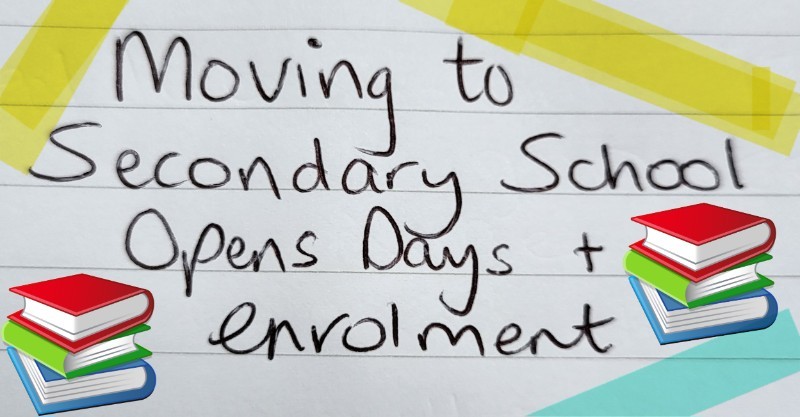 Moving to
Secondary School
Opens Days +
enrolment